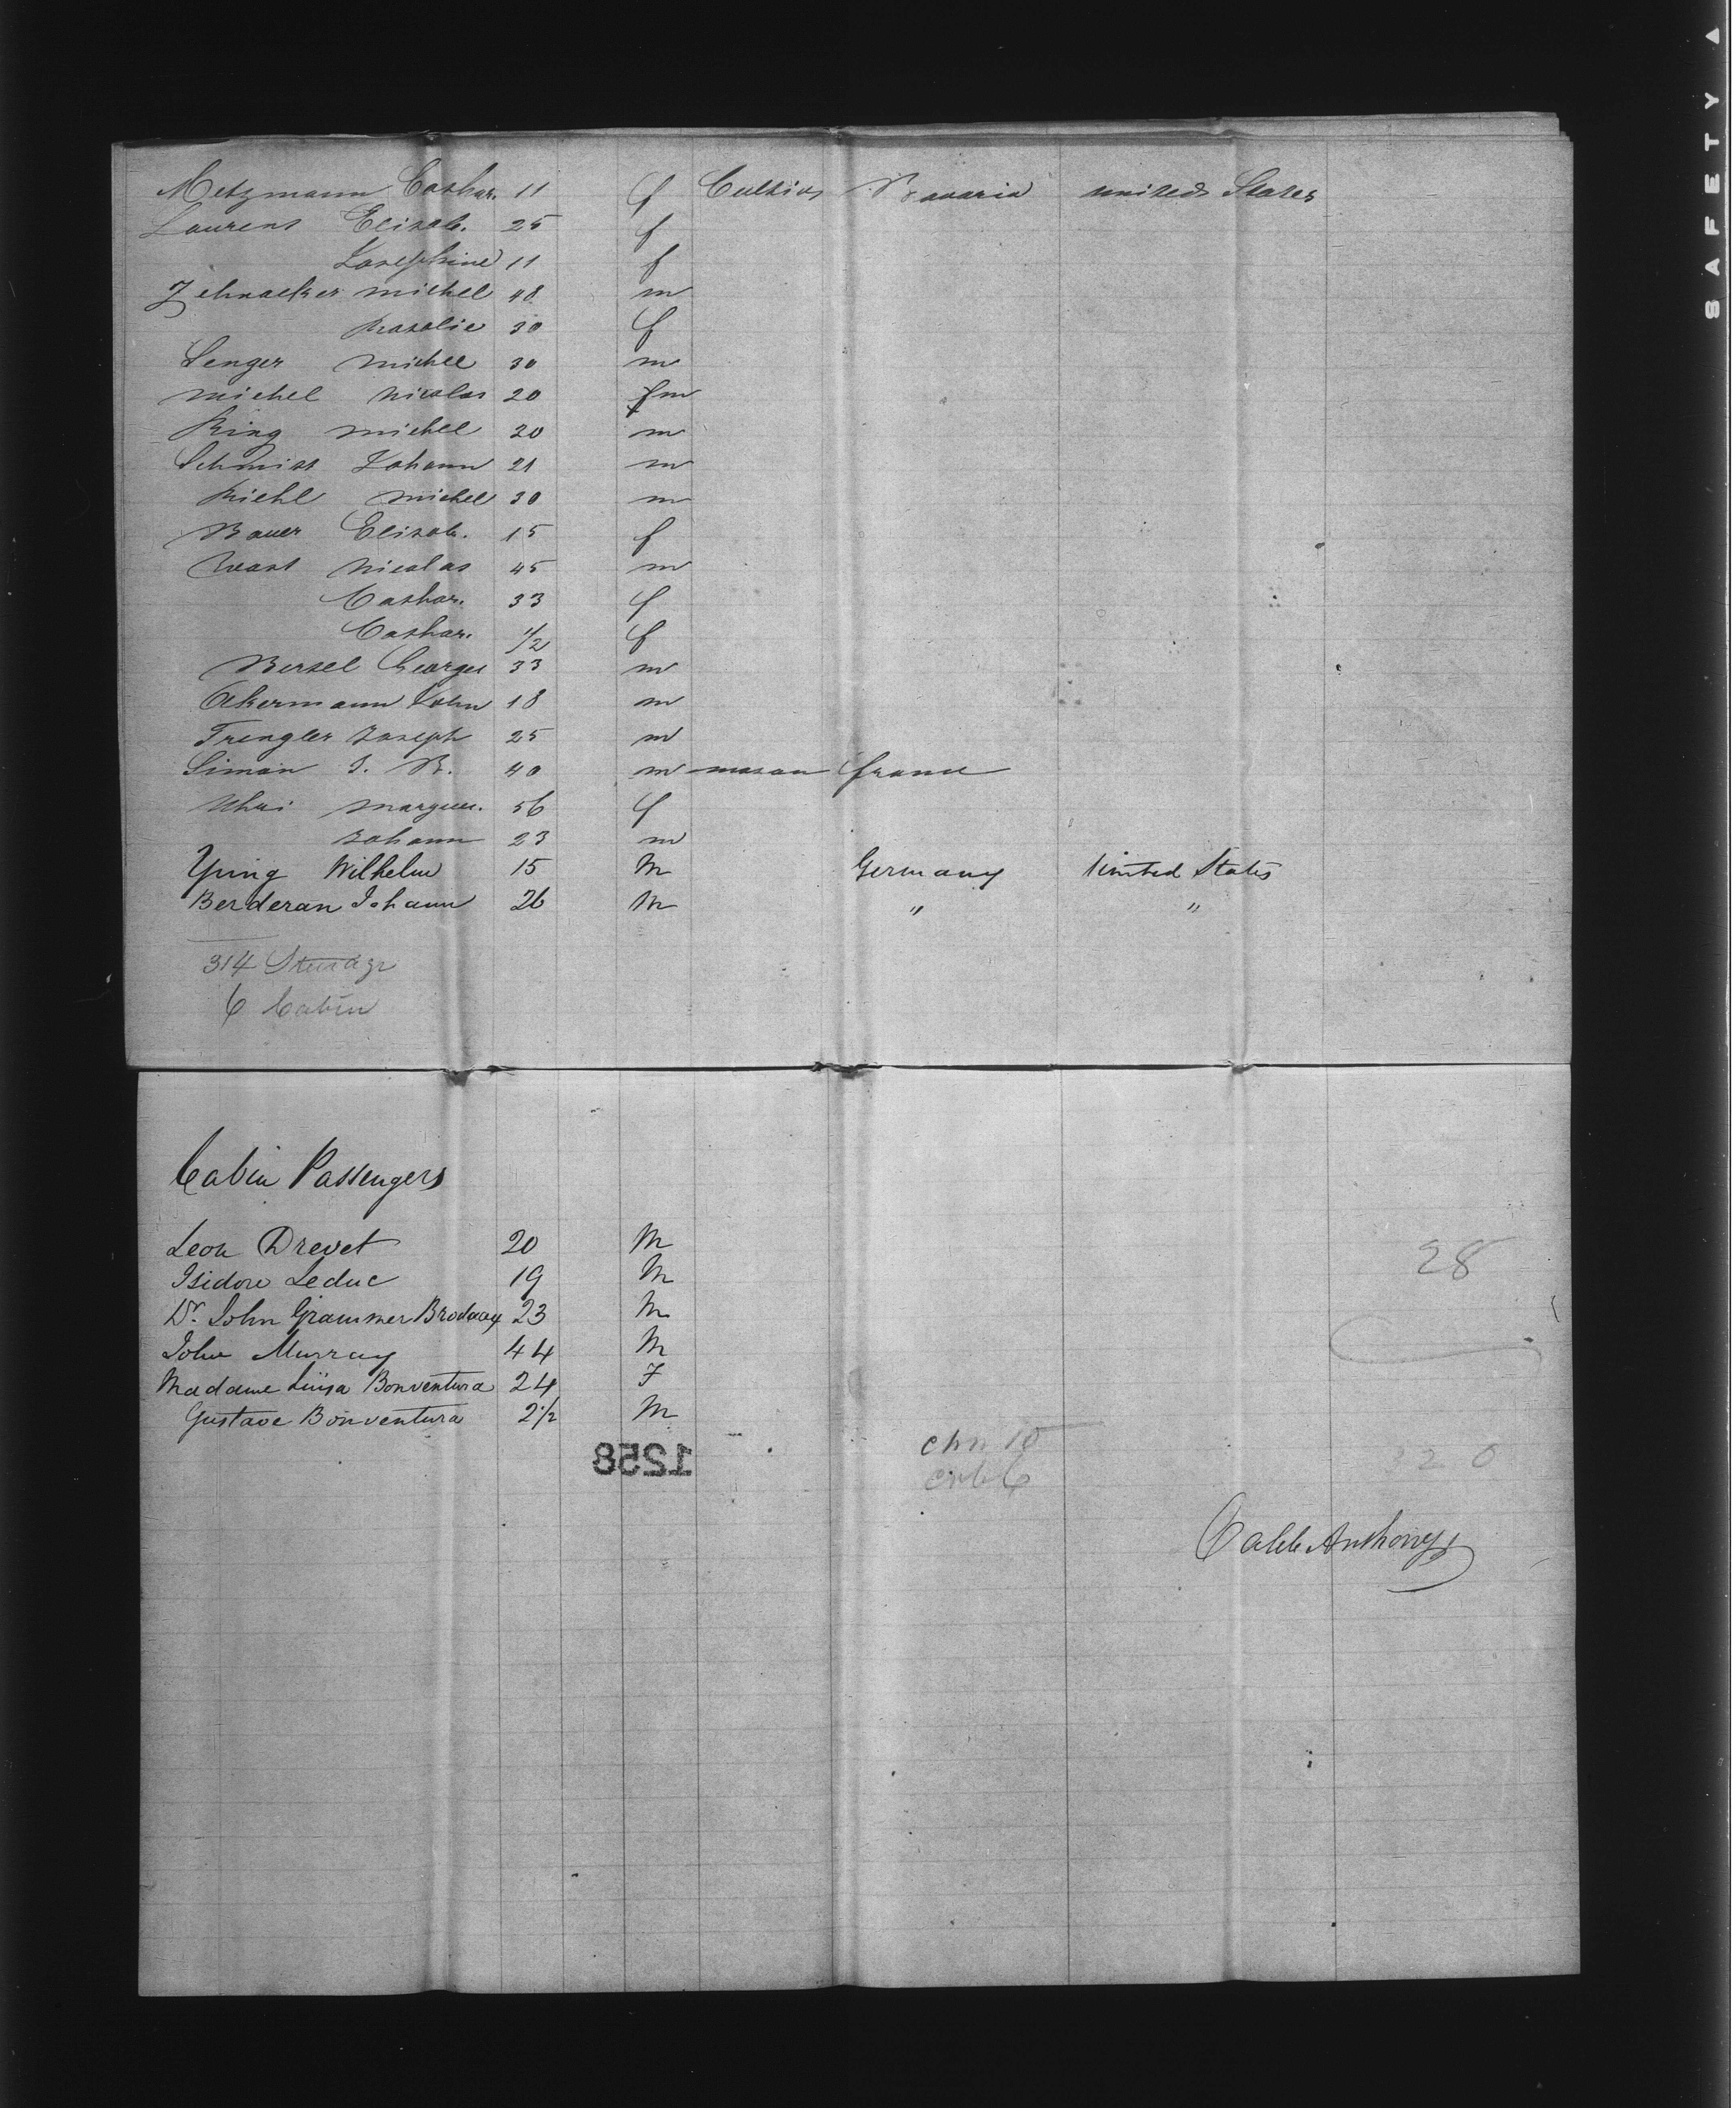 Metzmann Cathar. 11 f Cultiv. Bavaria united States
Laurent Elisab. 25 f
Josephine 11 f
Zehnacker michel 48 m
Rosalie 30 f
Senger michel 30 m
michel nicolas 20 m
King michel 20 m
Schmitt Johann 21 m
Riehl michel 30 m
Bauer Elisab. 15 f
Wast Nicolas 45 m
Cathar. 33 f
Cathar. 1/2 f
Bertel Georges 33 m
Akermann John 18 m
Trengler Joseph 25 m
Simon J. B. 40 m mason france
Uhri marguer. 56 f
Johann 23 m
Yung Wilhelm 15 M Germany United States
Berderan Johann 26 M " "
314 Steerage
6 Cabin
Cabin Passengers
Leon Drevet 20 M
Isidore Leduc 19 M 28
Dr. John Grammer Brodnax 23 M
John Murray 44 M
Madame Luisa Bonventura 24 F
Gustave Bonventura 2 1/2 M
1258
320
Caleb Anthony
SAFETY